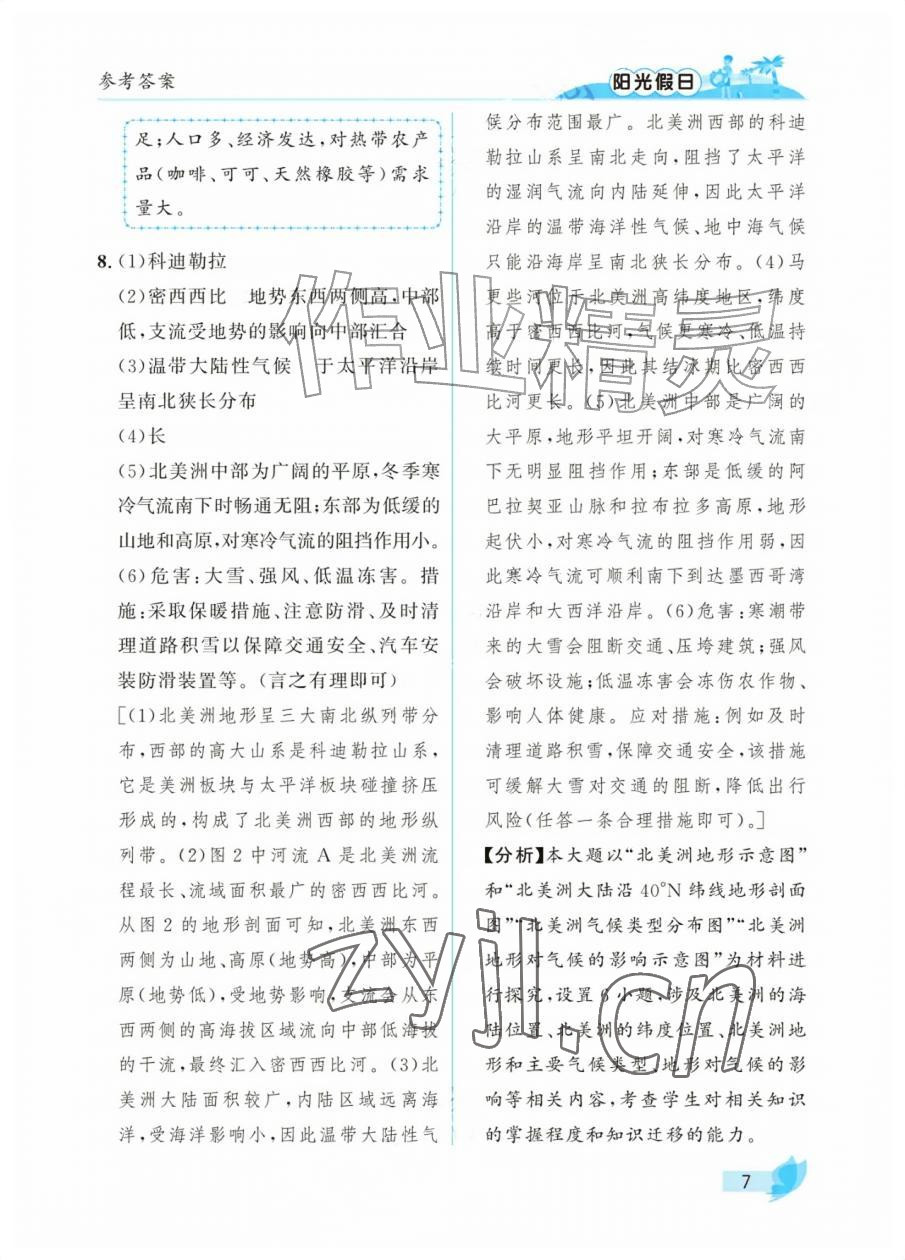 参考答案
阳光假日
足;人口多、经济发达,对热带农产
品(咖啡、可可、天然橡胶等)需求
量大。
8.(1)科迪勒拉
(2)密西西比 地势东西两侧高,中部
低,支流受地势的影响向中部汇合
(3)温带大陆性气候 于太平洋沿岸
呈南北狭长分布
(4)长
(5)北美洲中部为广阔的平原,冬季寒
冷气流南下时畅通无阻;东部为低缓的
山地和高原,对寒冷气流的阻挡作用小。
(6)危害:大雪、强风、低温冻害。措
施:采取保暖措施、注意防滑、及时清
理道路积雪以保障交通安全、汽车安
装防滑装置等。(言之有理即可)
[(1)北美洲地形呈三大南北纵列带分
布,西部的高大山系是科迪勒拉山系,
它是美洲板块与太平洋板块碰撞挤压
形成的,构成了北美洲西部的地形纵
列带。(2)图2中河流A是北美洲流
程最长、流域面积最广的密西西比河。
从图2的地形剖面可知,北美洲东西
两侧为山地、高原(地势高),中部为平
原(地势低),受地势影响,支流会从东
西两侧的高海拔区域流向中部低海拔
的干流,最终汇入密西西比河。(3)北
美洲大陆面积较广,内陆区域远离海
洋,受海洋影响小,因此温带大陆性气
候分布范围最广。北美洲西部的科迪
勒拉山系呈南北走向,阻挡了太平洋
的湿润气流向内陆延伸,因此太平洋
沿岸的温带海洋性气候、地中海气候
只能沿海岸呈南北狭长分布。(4)马
更些河位于北美洲高纬度地区,纬度
高于密西西比河,气候更寒冷、低温持
续时间更长,因此其结冰期比密西西
比河更长。(5)北美洲中部是广阔的
大平原,地形平坦开阔,对寒冷气流南
下无明显阻挡作用;东部是低缓的阿
巴拉契亚山脉和拉布拉多高原,地形
起伏小,对寒冷气流的阻挡作用弱,因
此寒冷气流可顺利南下到达墨西哥湾
沿岸和大西洋沿岸。(6)危害:寒潮带
来的大雪会阻断交通、压垮建筑;强风
会破坏设施;低温冻害会冻伤农作物、
影响人体健康。应对措施:例如及时
清理道路积雪,保障交通安全,该措施
可缓解大雪对交通的阻断,降低出行
风险(任答一条合理措施即可)。]
【分析】本大题以“北美洲地形示意图”
和“北美洲大陆沿40°N纬线地形剖面
图”“北美洲气候类型分布图”“北美洲
地形对气候的影响示意图”为材料进
行探究,设置6小题,涉及北美洲的海
陆位置、北美洲的纬度位置、北美洲地
形和主要气候类型、地形对气候的影
响等相关内容,考查学生对相关知识
的掌握程度和知识迁移的能力。
作业精灵
zyjl.cn
7